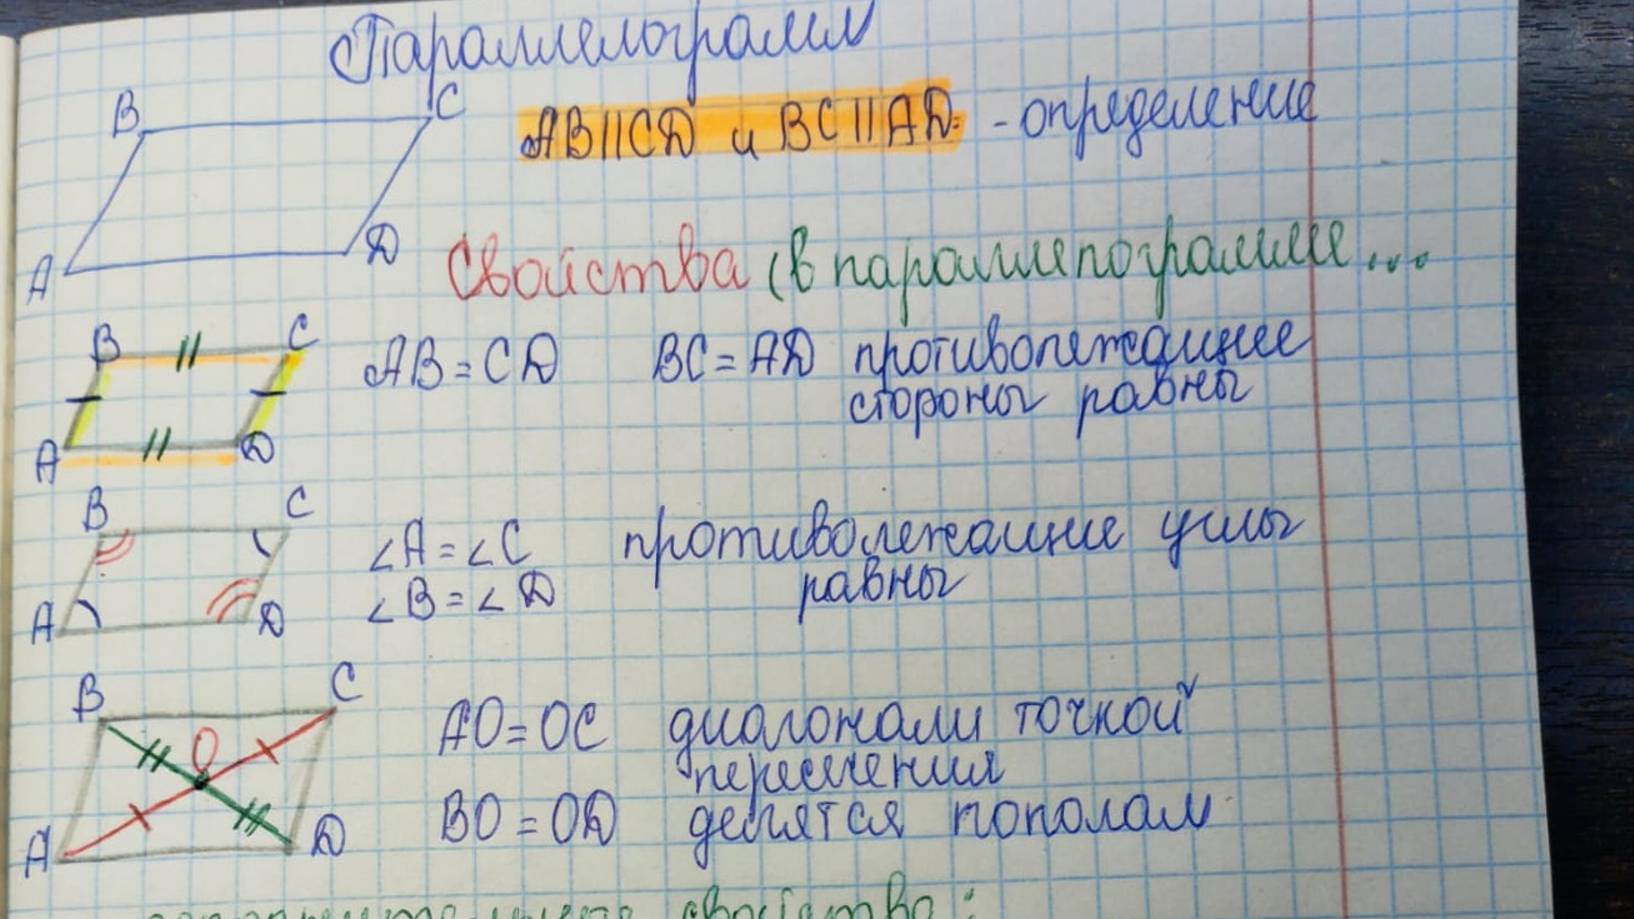 Параллелограмм
B C
AB||CD и BC||AD - определение
A D
Свойства (в параллелограмме...
B C
AB = CD BC = AD противолежащие
стороны равны
A D
B C
∠A = ∠C противолежащие углы
∠B = ∠D равны
A D
B C
AO = OC диагонали точкой
O
пересечения
BO = OD делятся пополам
A D
свойства: